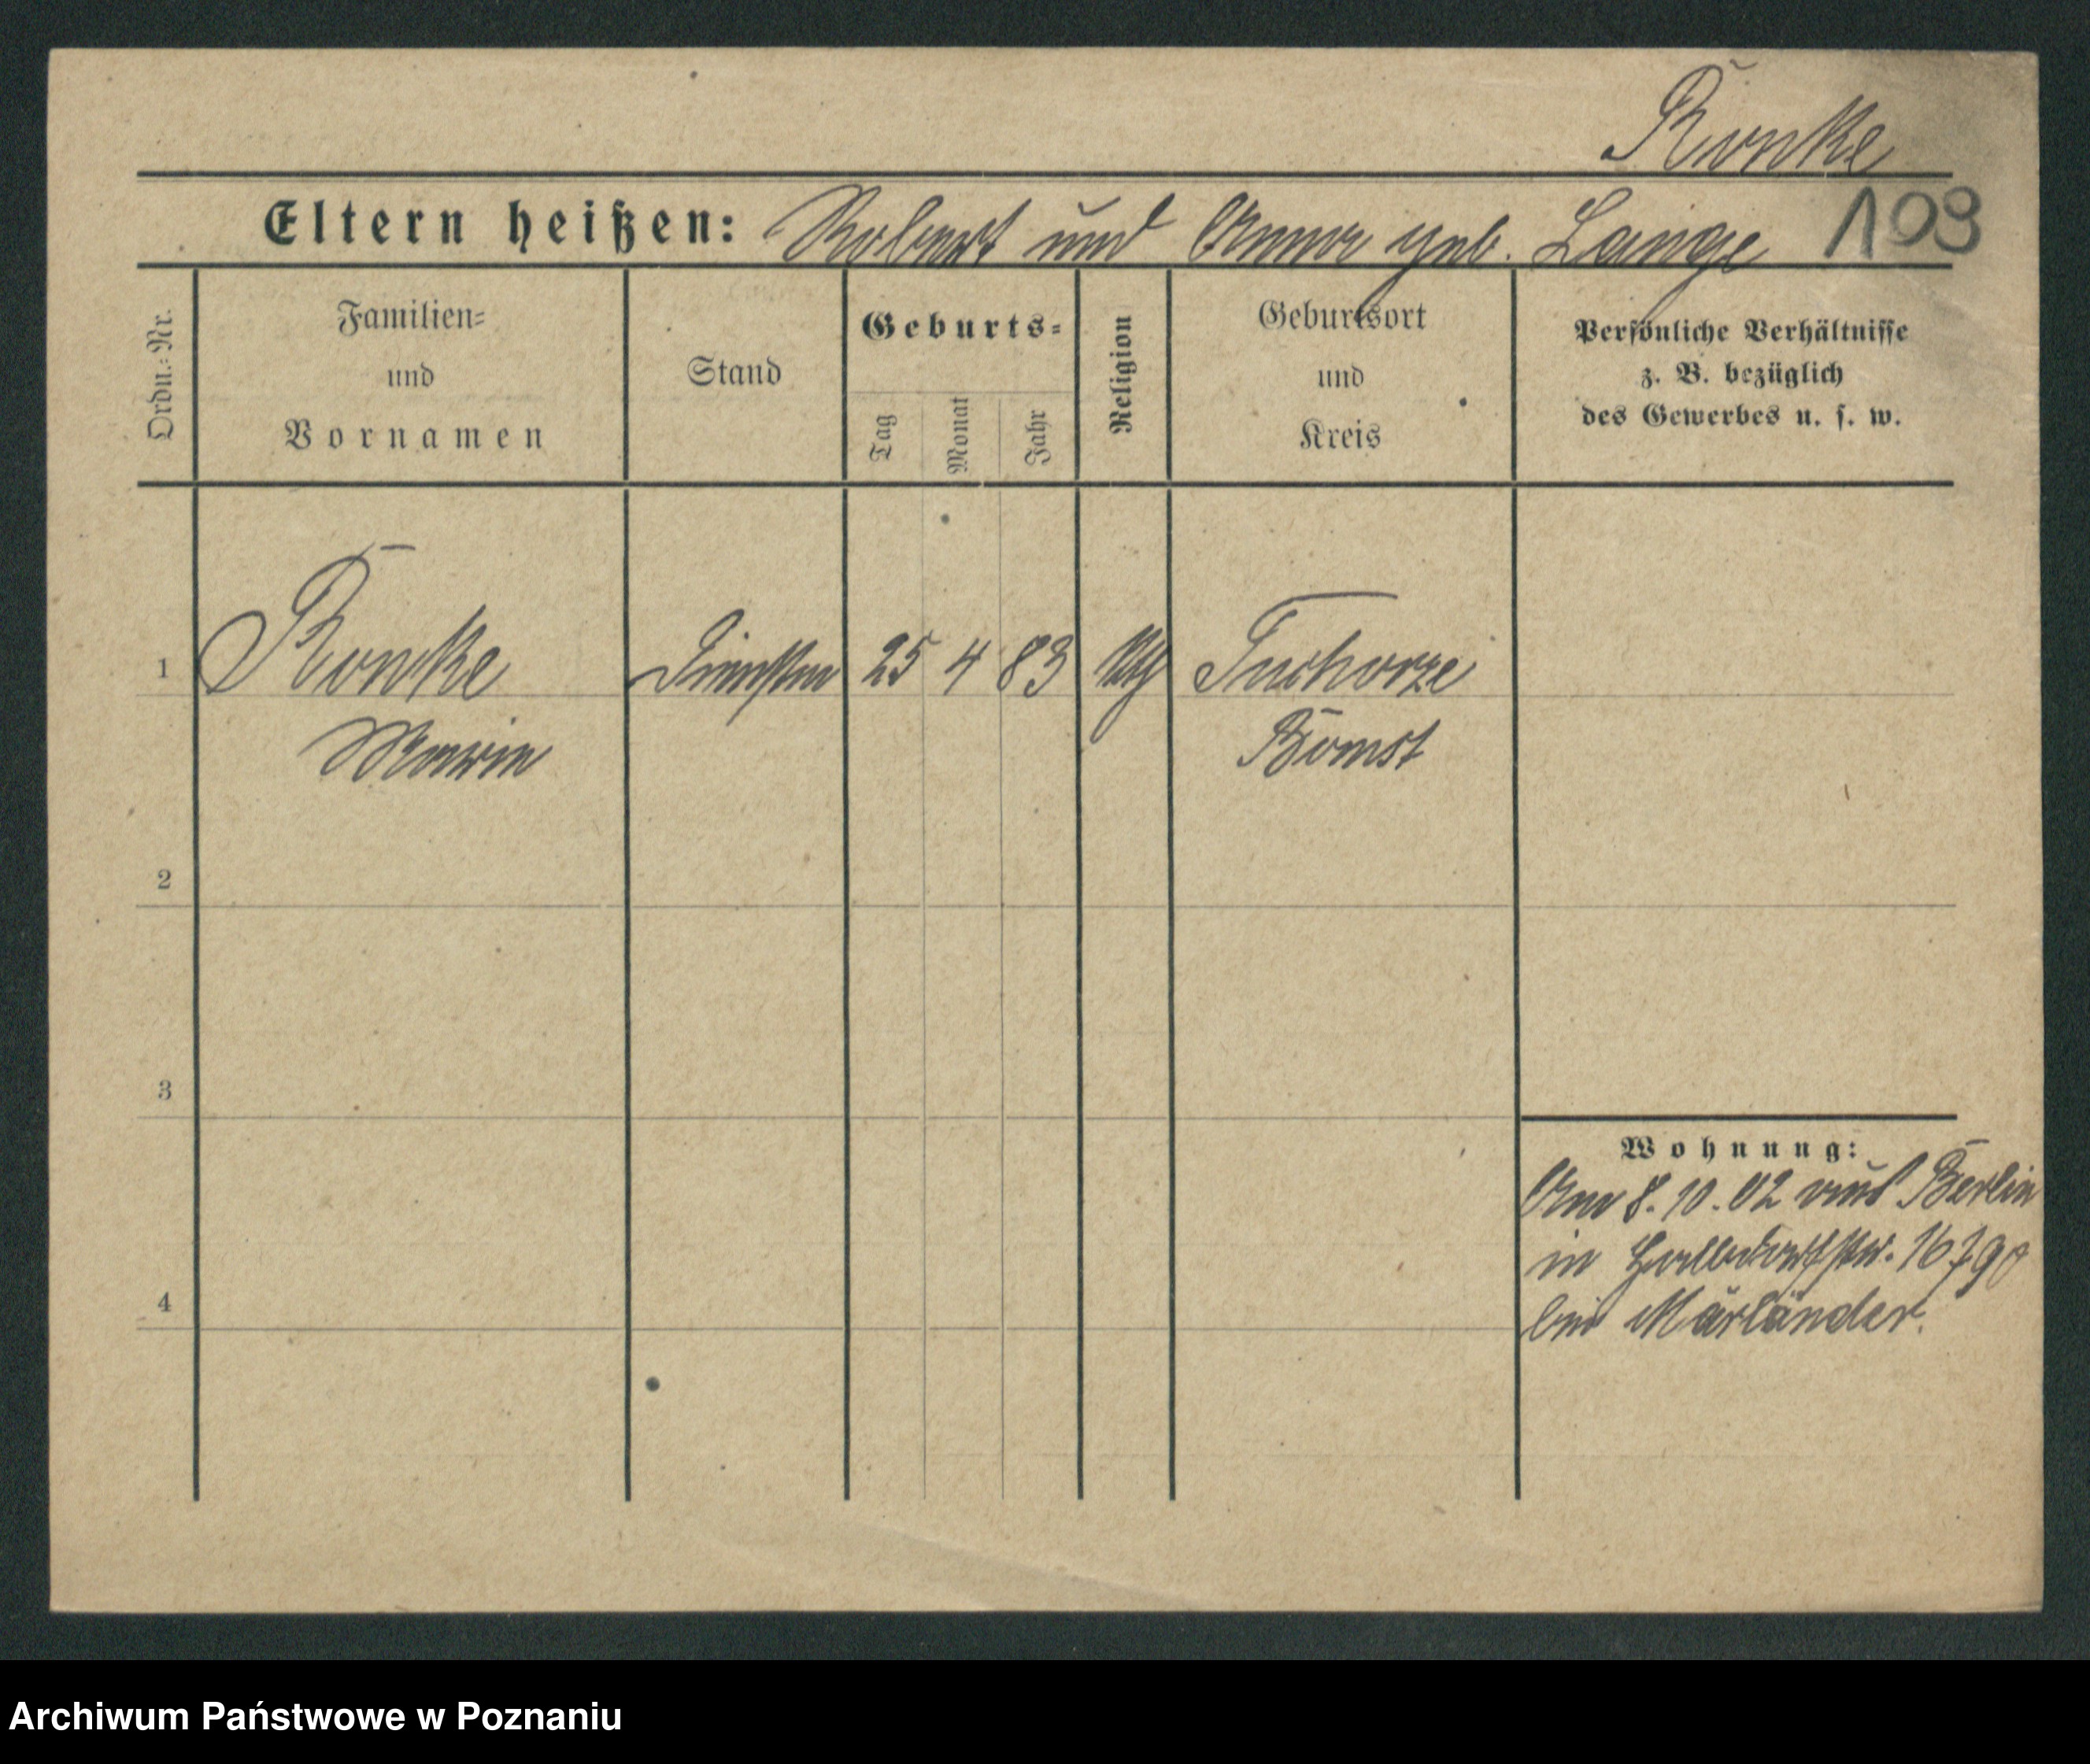 Ronke
Eltern heißen: Robert und Anna geb. Lange 109
Ordn.=Nr.
Familien=
und
Vornamen
Stand
Geburts=
Tag
Monat
Jahr
Religion
Geburtsort
und
Kreis
Persönliche Verhältnisse
z. B. bezüglich
des Gewerbes u. s. w.
1 Ronke 25 4 83 Tuchorze
Marie Bomst
2
3
4
Wohnung:
Am 8. 10. 02 aus Berlin
in 16
bei Märländer.
Archiwum Państwowe w Poznaniu